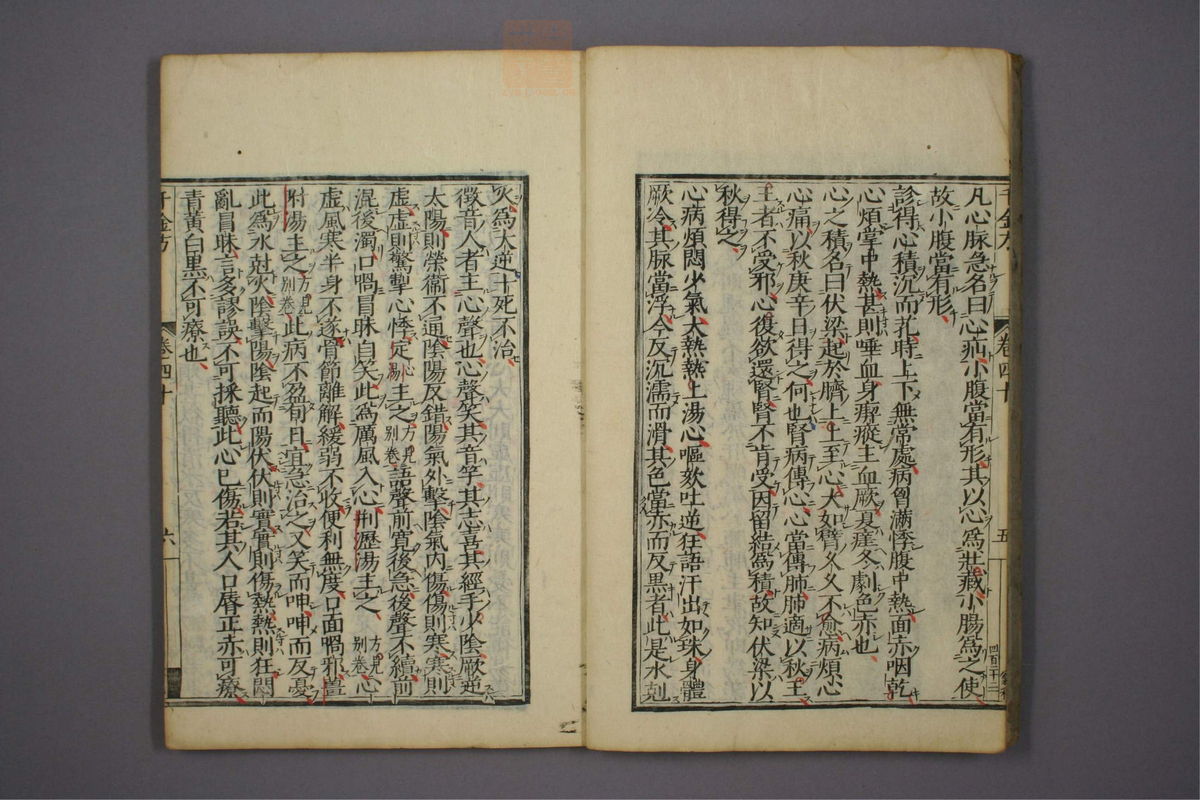 凡心脉急名曰心疝小腹當有形其以心爲壯藏小腸爲之使
故小腹當有形
診得心積沉而芤時上下無常處病胷滿悸腹中熱面赤咽乾
心煩掌中熱甚則唾血身瘈瘲主血厥夏瘥冬劇色赤也
心之積名曰伏梁起於臍上上至心大如臂久久不愈病煩心
心痛以秋庚辛日得之何也腎病傳心心當傳肺肺適以秋王
王者不受邪心復欲還腎腎不肯受因留結爲積故知伏梁以
秋得之
心病煩悶少氣大熱熱上湯心嘔欬吐逆狂語汗出如珠身體
厥冷其脉當浮今反沉濡而滑其色當赤而反黒者此是水剋
火爲大逆十死不治
徵音人者主心聲也心聲笑其音竽其志喜其經手少陰厥逆
太陽則榮衞不通陰陽反錯陽氣外擊陰氣内傷傷則寒寒則
虚虚則驚掣心悸定心湯主之方見別卷語聲前寛後急後聲不續前
混後濁口喎冒昧自笑此爲厲風入心荆瀝湯主之方見別卷心
虚風寒半身不遂骨節離解緩弱不收便利無度口面喎邪薑
附湯主之方見別卷此病不盈旬日宜急治之又笑而呻呻而反憂
此爲水尅火陰擊陽陰起而陽伏伏則實實則傷熱熱則狂悶
亂冒昧言多謬誤不可採聽此心已傷若其人口脣正赤可療
青黄白黒不可療也
千金方
卷四十
五
四百二十二
千金方
卷四十
六